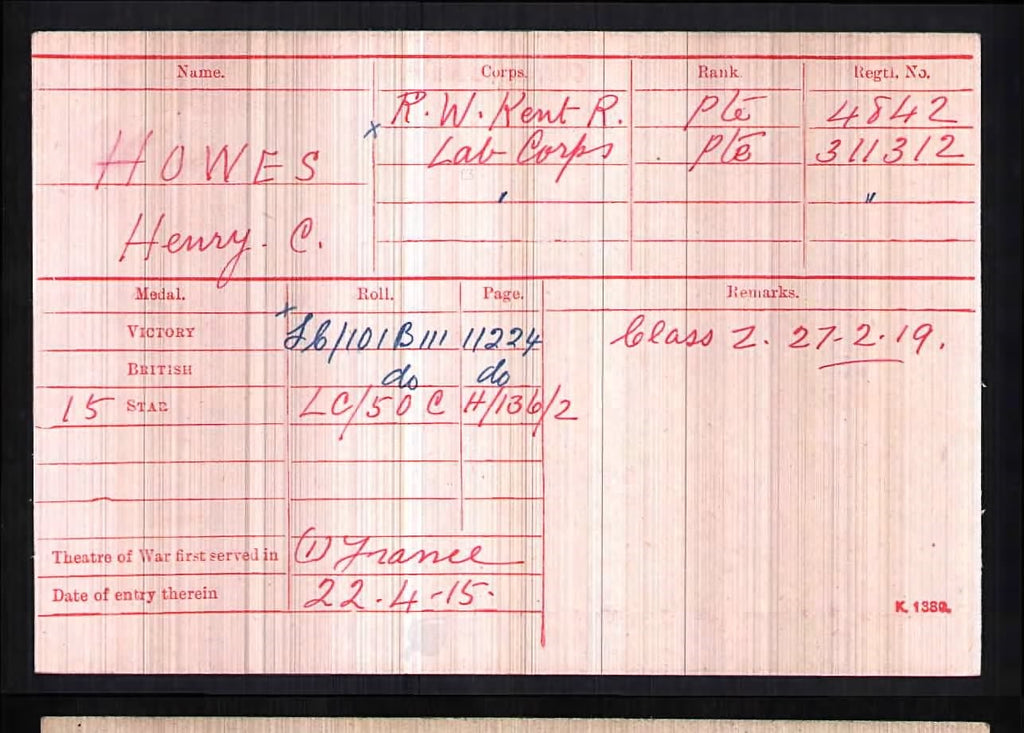 Name. Corps. Rank Regtl. No.
R. W. Kent R. Pte 4842
x
HOWES Lab Corps Pte 311312
" "
Henry. C.
Medal. Roll. Page. Remarks.
x
VICTORY 101B111 11224 Class Z. 27-2-19.
BRITISH do do
15 STAR LC/50 C H/136/2
Theatre of War first served in (1) France
Date of entry therein 22-4-15.
K. 1380.